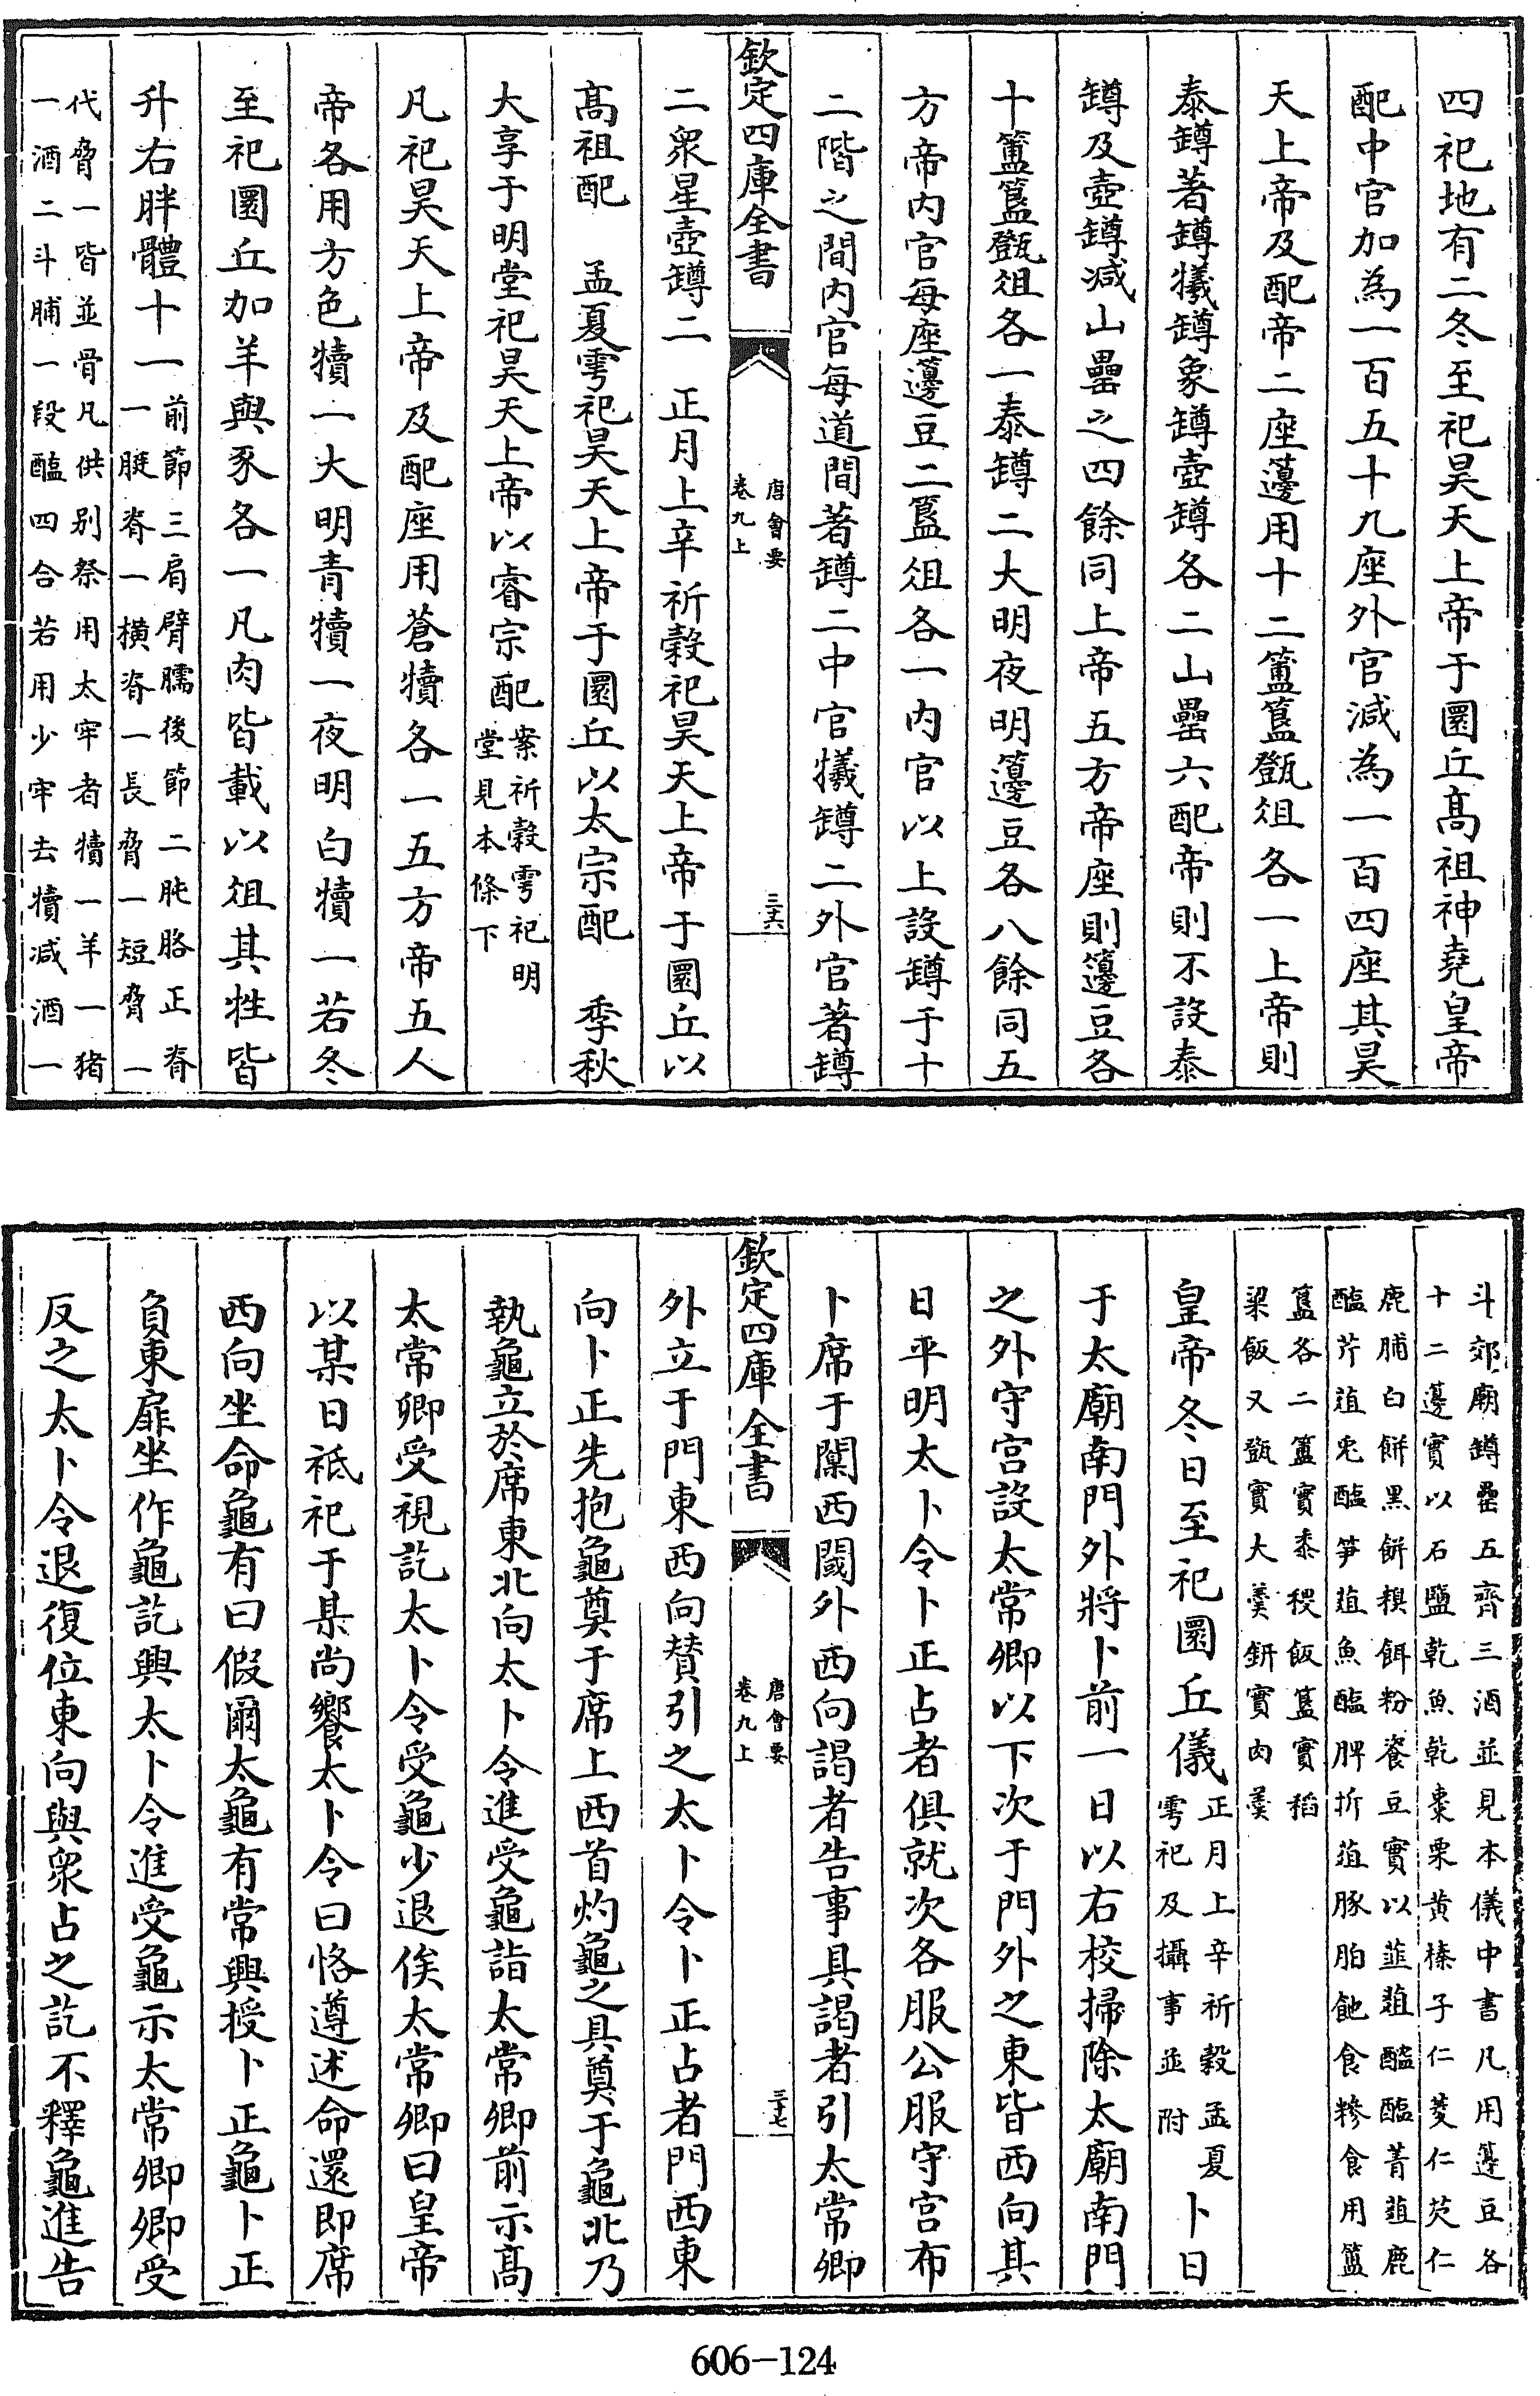 四祀地有二冬至祀昊天上帝于圜丘髙祖神堯皇帝
配中官加為一百五十九座外官減為一百四座其昊
天上帝及配帝二座籩用十二簠簋㽅俎各一上帝則
泰罇著罇犧罇象罇壺罇各二山罍六配帝則不設泰
罇及壺罇減山罍之四餘同上帝五方帝座則籩豆各
十簠簋㽅俎各一泰罇二大明夜明籩豆各八餘同五
方帝内官每座籩豆二簋俎各一内官以上設罇于十
二階之間内官每道間著罇二中官犧罇二外官著罇
欽定四庫全書
唐會要
卷九上
三十六
二衆星壺罇二 正月上辛祈穀祀昊天上帝于圜丘以
髙祖配 孟夏雩祀昊天上帝于圜丘以太宗配 季秋
大享于明堂祀昊天上帝以睿宗配案祈穀雩祀明
堂見本條下
凡祀昊天上帝及配座用蒼犢各一五方帝五人
帝各用方色犢一大明青犢一夜明白犢一若冬
至祀圜丘加羊與豕各一凡肉皆載以俎其牲皆
升右胖體十一前節三肩臂臑後節二肫胳正脊
一脡脊一横脊一長脅一短脅一
代脅一皆並骨凡供别祭用太牢者犢一羊一猪
一酒二斗脯一段醢四合若用少牢去犢減酒一
斗郊廟罇罍五齊三酒並見本儀中書凡用籩豆各
十二籩實以石鹽乾魚乾棗栗黄榛子仁菱仁芡仁
鹿脯白餅黑餅糗餌粉餈豆實以韮葅醓醢菁葅鹿
醢芹葅兎醢笋葅魚醢脾折葅豚胎飽食糝食用簠
簋各二簋實黍稷飯簠實稻
粱飯又㽅實大羮鈃實肉羮
皇帝冬日至祀圜丘儀正月上辛祈穀孟夏
雩祀及攝事並附 卜日
于太廟南門外將卜前一日以右校掃除太廟南門
之外守宫設太常卿以下次于門外之東皆西向其
日平明太卜令卜正占者俱就次各服公服守宫布
卜席于闑西閾外西向謁者告事具謁者引太常卿
欽定四庫全書
唐會要
卷九上
三十七
外立于門東西向賛引之太卜令卜正占者門西東
向卜正先抱龜奠于席上西首灼龜之具奠于龜北乃
執龜立於席東北向太卜令進受龜詣太常卿前示髙
太常卿受視訖太卜令受龜少退俟太常卿曰皇帝
以某日祗祀于某尚饗太卜令曰恪遵述命還即席
西向坐命龜有曰假爾太龜有常興授卜正龜卜正
負東扉坐作龜訖興太卜令進受龜示太常卿卿受
反之太卜令退復位東向與衆占之訖不釋龜進告
606-124